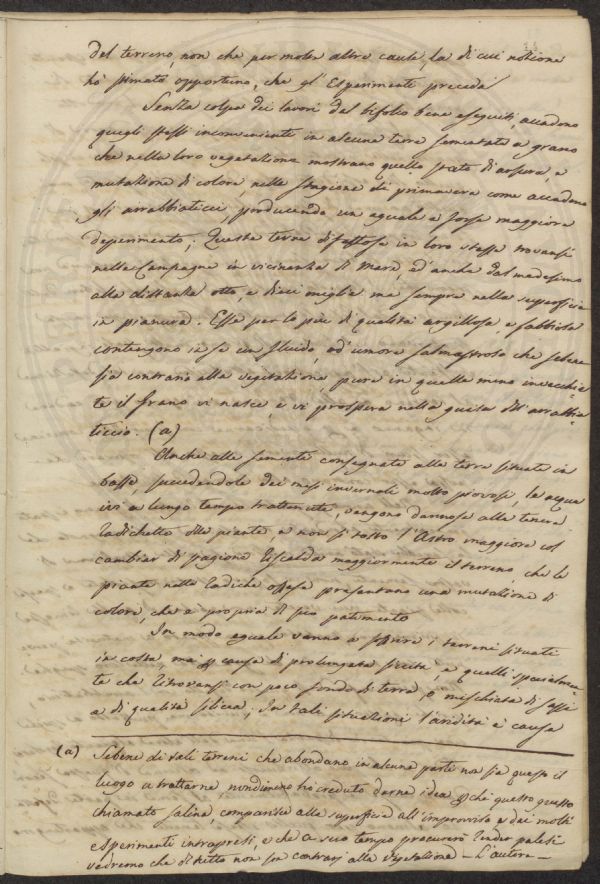 del terreno, non che per molte altre cause, la di cui notione
hò stimato opportuno, che gl'Esperimenti preceda
Senza colpa dei lavori dal bifolco bene eseguiti, accadono
quegli stessi inconvenienti in alcune terre sementate a grano
che nella loro vegetatione mostrano quello stato di arsura, e
mutatione di colore, nella stagione di primavera come accadono
gli arrabbiaticci, producendo un eguale e forse maggiore
deperimento; Queste terre difettose in loro stesse trovansi
nelle Campagne in vicinanza il mare, ed anche dal medesimo
alla distanza otto, e dieci miglia ma sempre nella superficie
in pianura. Esse per lo più di qualità argillosa, e sabbiosa
contengono in se un fluido, od umore salmastroso che sebene
sia contrario alla vegetatione pure in quelle meno invecchia-
te il grano vi nasce e vi prospera nella guisa dell'arrabbia-
ticcio. (a)
Anche alle semente consegnate alle terre situate in
basse, succedendole dei mesi invernali molto piovosi, le acque
ivi a lungo tempo trattenute, vengono dannose alle tenere
radichette delle piante, e non si tosto l'Astro maggiore col
cambiar di stagione riscalda maggiormente il terreno, che le
piante nelle radiche offese presentano una mutatione di
colore, che è propria di suo patimento
In modo eguale vanno a soffrire i terreni situati
in costa, ma p causa di prolungata siccità, e quelli specialmen-
te che ritrovansi con poco fondo di terra, o mischiata di sassi
e di qualità silicea, In tali situationi l'aridità è causa
(a) Sebene di tali terreni che abondano in alcune parti non sia questo il
luogo a trattarne, nondimeno hò creduto darne idea p chè questo guasto
chiamato salino, comparisce alla superficie all'improvviso e dei molti
esperimenti intrapresi e che a suo tempo procurerò render palesi
vedremo che di tutto non son contrarj alla vegetatione - L'autore -